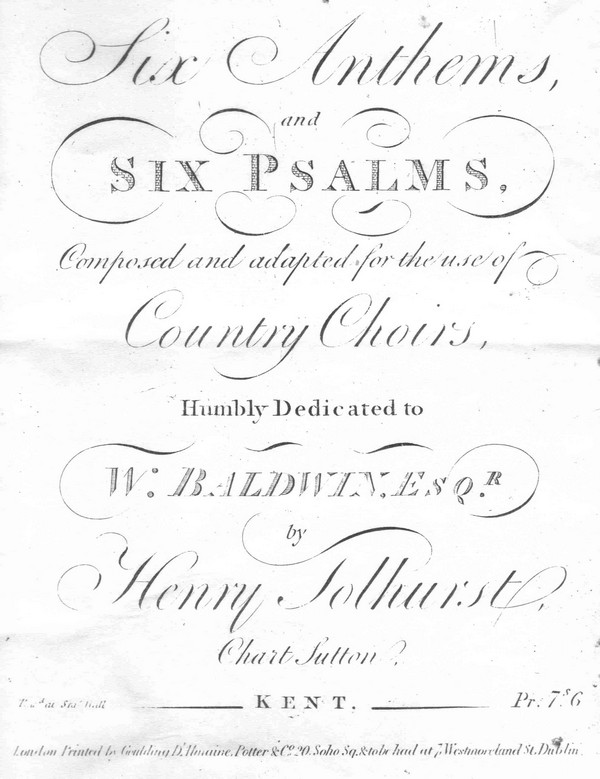 Six Anthems,
and
SIX PSALMS,
Composed and adapted for the use of
Country Choirs,
Humbly Dedicated to
Wm. BALDWIN, ESQ.R
by
Henry Tolhurst,
Chart Sutton.
KENT. Pr. 7s. 6
London Printed by Goulding D'Almaine, Potter & Co. 20, Soho Sq. & to be had at 7, Westmoreland St. Dublin